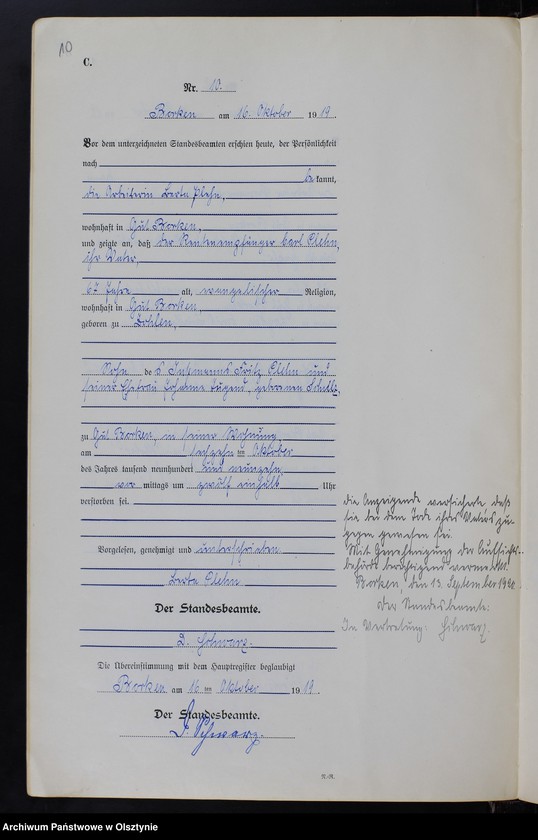 10
C.
Nr. 10.
Borken am 16. Oktober 1919.
Vor dem unterzeichneten Standesbeamten erschien heute, der Persönlichkeit
nach
be kannt,
die Arbeiterin Berta Plehn,
wohnhaft in Gut Borken,
und zeigte an, daß der Rentenempfänger Carl Plehn,
ihr Vater,
67 Jahre alt, evangelischer Religion,
wohnhaft in Gut Borken,
geboren zu
Sohn des Instmanns Fritz Plehn und
seiner Ehefrau geborenen Schultz,
zu Gut Borken, in seiner Wohnung,
am sechzehn ten Oktober
des Jahres tausend neunhundert und neunzehn,
vor mittags um zwölf einhalb Uhr
verstorben sei.
Vorgelesen, genehmigt und unterschrieben
Berta Plehn
Der Standesbeamte.
Schwarz.
Die Übereinstimmung mit dem Hauptregister beglaubigt
Borken am 16 ten Oktober 1919.
Der Standesbeamte.
Schwarz.
N.-R.
die Anzeigende versicherte, daß
sie bei dem Tode ihres Vaters zu-
gegen gewesen sei.
Mit Genehmigung der Aufsichts-
behörde berichtigend vermerkt.
Borken, den 13. September 1920.
Der Standesbeamte.
In Vertretung: Schwarz.
Archiwum Państwowe w Olsztynie